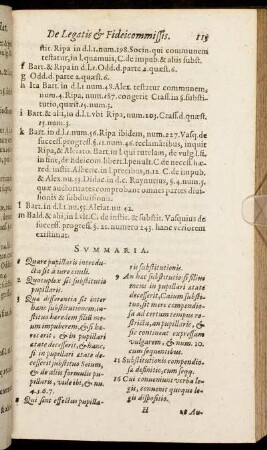 De Legatis & Fideicommissis. 113
stit. Ripa in d.l.1.num.198. Socin. qui communem
testatur, in l. quamuis, C. de impub. & aliis subst.
f Bart. & Ripa in d.l.1. Odd. d. parte 2. quæst. 6.
g Odd. d. parte 2. quæst. 6.
h Ita Bart. in d.l.1. num. 48. Alex. testatur commune,
num. 4. Ripa, num. 167. congerit Crass. in §. substi-
tutio, quæst. 19. num. 5.
i Bart. & alii, in d.l.1. Ripa, num. 103. Crass. d. quæst.
25. num. 5.
k Bart. in d.l.1. num. 36. Ripa ibidem, num. 227. Vasq. de
success. progress. §. 21. num. 46. reclamãtibus, inquit
Ripa, & Alciato. Bart. in l. qui liberis, de vulg.
fin. de fideicom. libert. l. penult. C. de necess. hæ-
red. instit. Alberic. in l. precibus, num. 12. C. de impub.
& Alex. nu. 53. Didac. in d. c. Raynutius, §. 5. num. 5.
quæ auctoritates comprobant omnes partes diuisio-
nis & subdiuisionis.
l Bart. in d.l.1. nu. 55. Alciat. nu. 42.
m Bald. & alii, in l. vlt. C. de instit. & substit. Vasquius de
success. progress. §. 21. numero 243. hanc veriorem
existimat.
SVMMARIA.
1 Quare pupillaris introdu-
cta sit à iure ciuili.
2 Quotuplex sit substitutio
pupillaris.
3 Qua differentia sit inter
hanc substitutionem, su-
bstituo heredem filii mei
meum impuberem, & si he-
res erit, & in pupillari
ætate decesserit, & hanc,
si in pupillari ætate dece-
sserit substituo Seium,
& de aliis formulis pu-
pillaris, vide ibi, & nu.
4.5.6.7.
8 Qui sint effectus pupilla-
ris substitutionis.
9 An hæc substitutio si filius
meus in pupillari ætate
decesserit, Caium substi-
tuo, sit mere compendio-
sa ad certum tempus re-
stricta, an pupillaris, &
sic contineat expressam
vulgarem, & num. 10.
cum sequentibus.
15 Substitutionis compendio-
sa definitio, cum seqq.
16 Cui conueniunt verba le-
gis, conuenit quoque le-
gis dispositio.
H 18 Au-